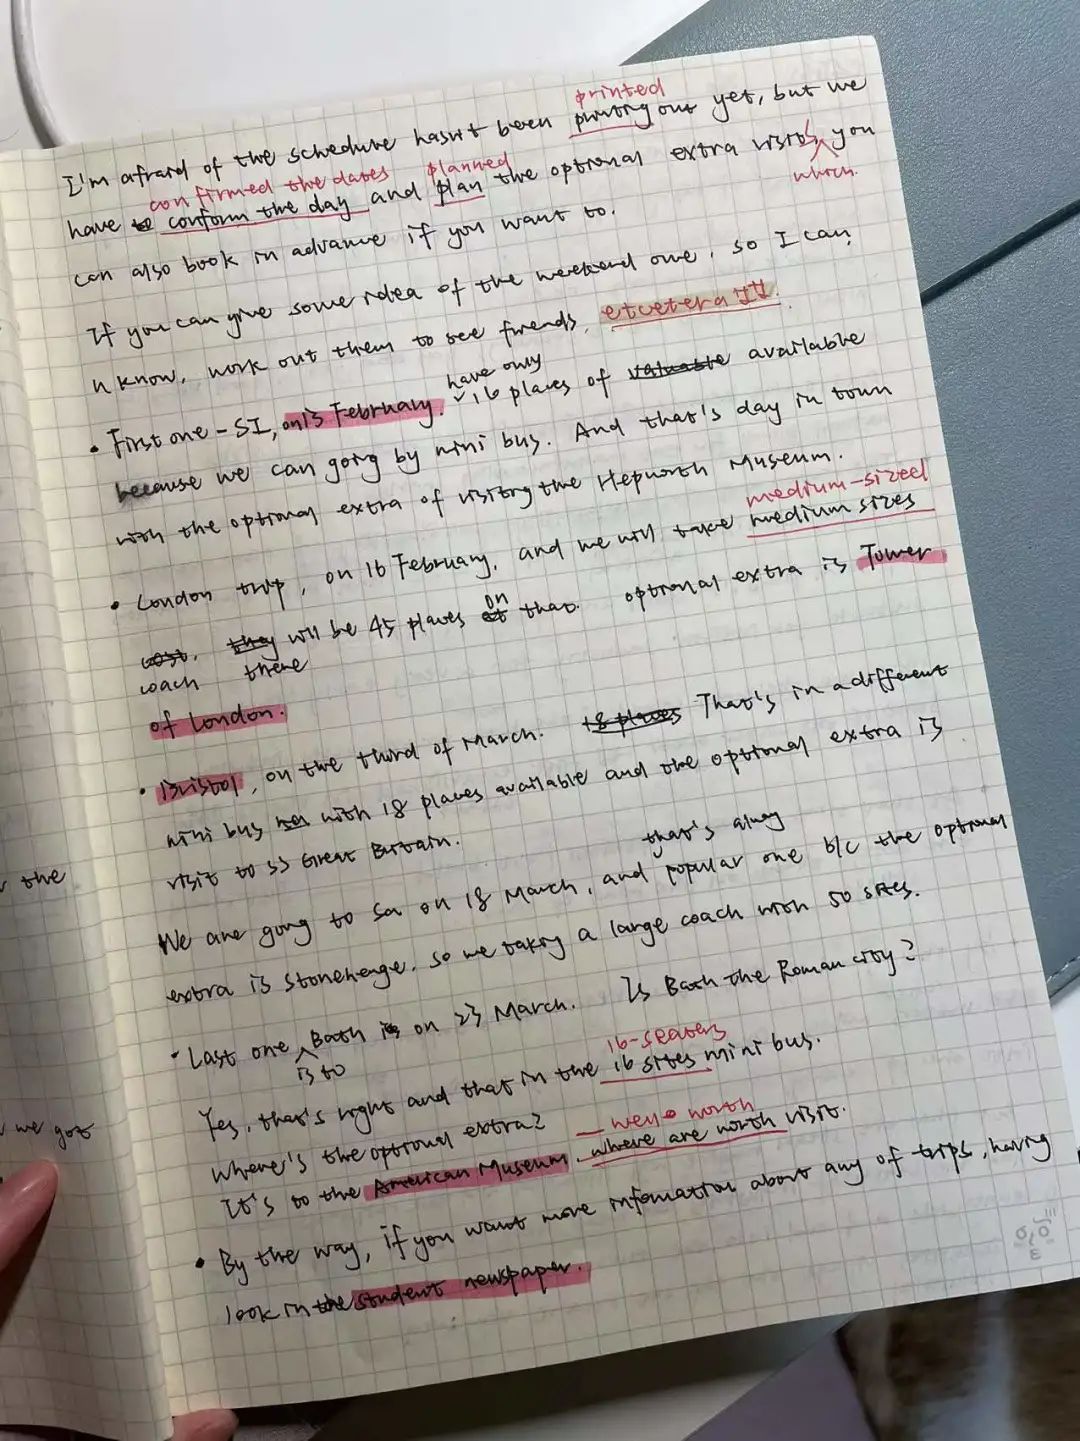 printed
I'm afraid of the schedule hasn't been printing out yet, but we
confirmed the dates planned
have to conform the day and plan the optional extra visits, you
which
can also book in advance if you want to.
If you can give some idea of the weekend one, so I can,
u know, work out them to see friends, etcetera
have only
• First one - SI, on 13 February. 16 places of valuable available
because we can going by mini bus. And that's day in town
with the optional extra of visiting the Hepworth Museum.
medium-sized
• London trip, on 16 February, and we will take medium sizes
cost. they will be 45 places at that. optional extra is Tower
on
coach there
of London.
• Bristol, on the third of March. 18 places That's in a different
mini bus with 18 places available and the optional extra is
visit to SS Great Britain.
that's alway
We are going to Sa on 18 March, and popular one b/c the optional
extra is Stonehenge. so we taking a large coach with 50 sites.
• Last one Bath is on 23 March. Is Bath the Roman city?
is to
16-seaters
Yes, that's right and that in the 16 sites mini bus.
Where's the optional extra?
well worth
It's to the American Museum, where are worth visit.
• By the way, if you want more infomation about any of trips, having
look in the student newspaper.
the
we got